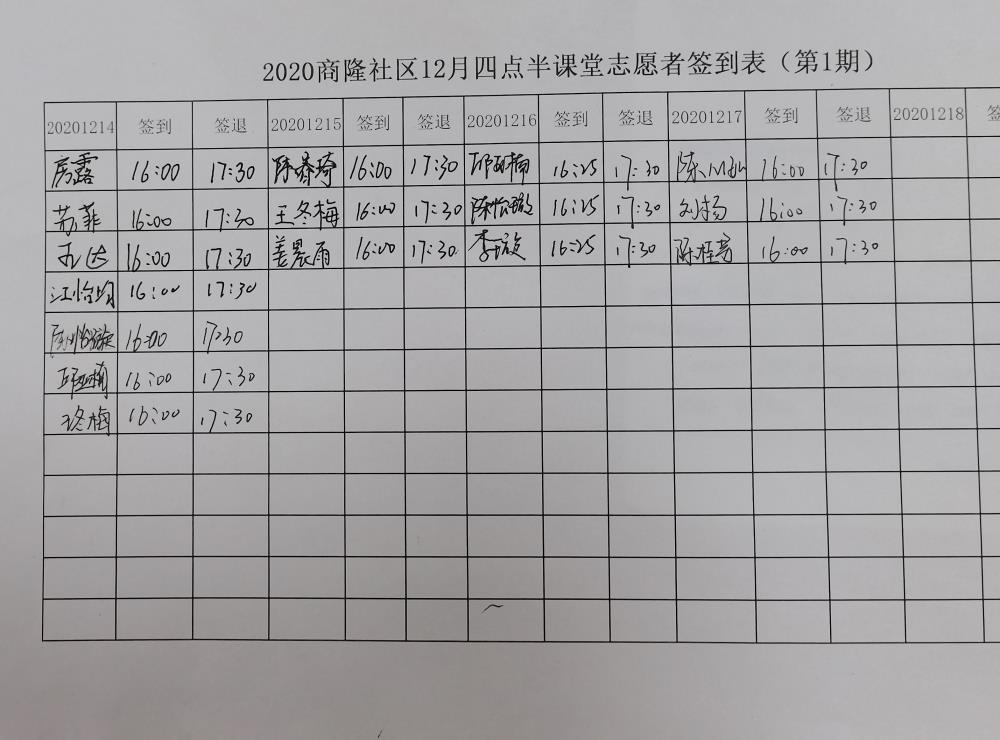 2020商隆社区12月四点半课堂志愿者签到表（第1期）
20201214 签到 签退 20201215 签到 签退 20201216 签到 签退 20201217 签到 签退 20201218
房露 16:00 17:30 16:00 17:30 16:25 17:30 16:00 17:30
苏菲 16:00 17:30 王冬梅 16:00 17:30 16:25 17:30 刘扬 16:00 17:30
16:00 17:30 姜晨雨 16:00 17:30 李璇 16:25 17:30 16:00 17:30
江怡均 16:00 17:30
16:00 17:30
16:00 17:30
王冬梅 16:00 17:30